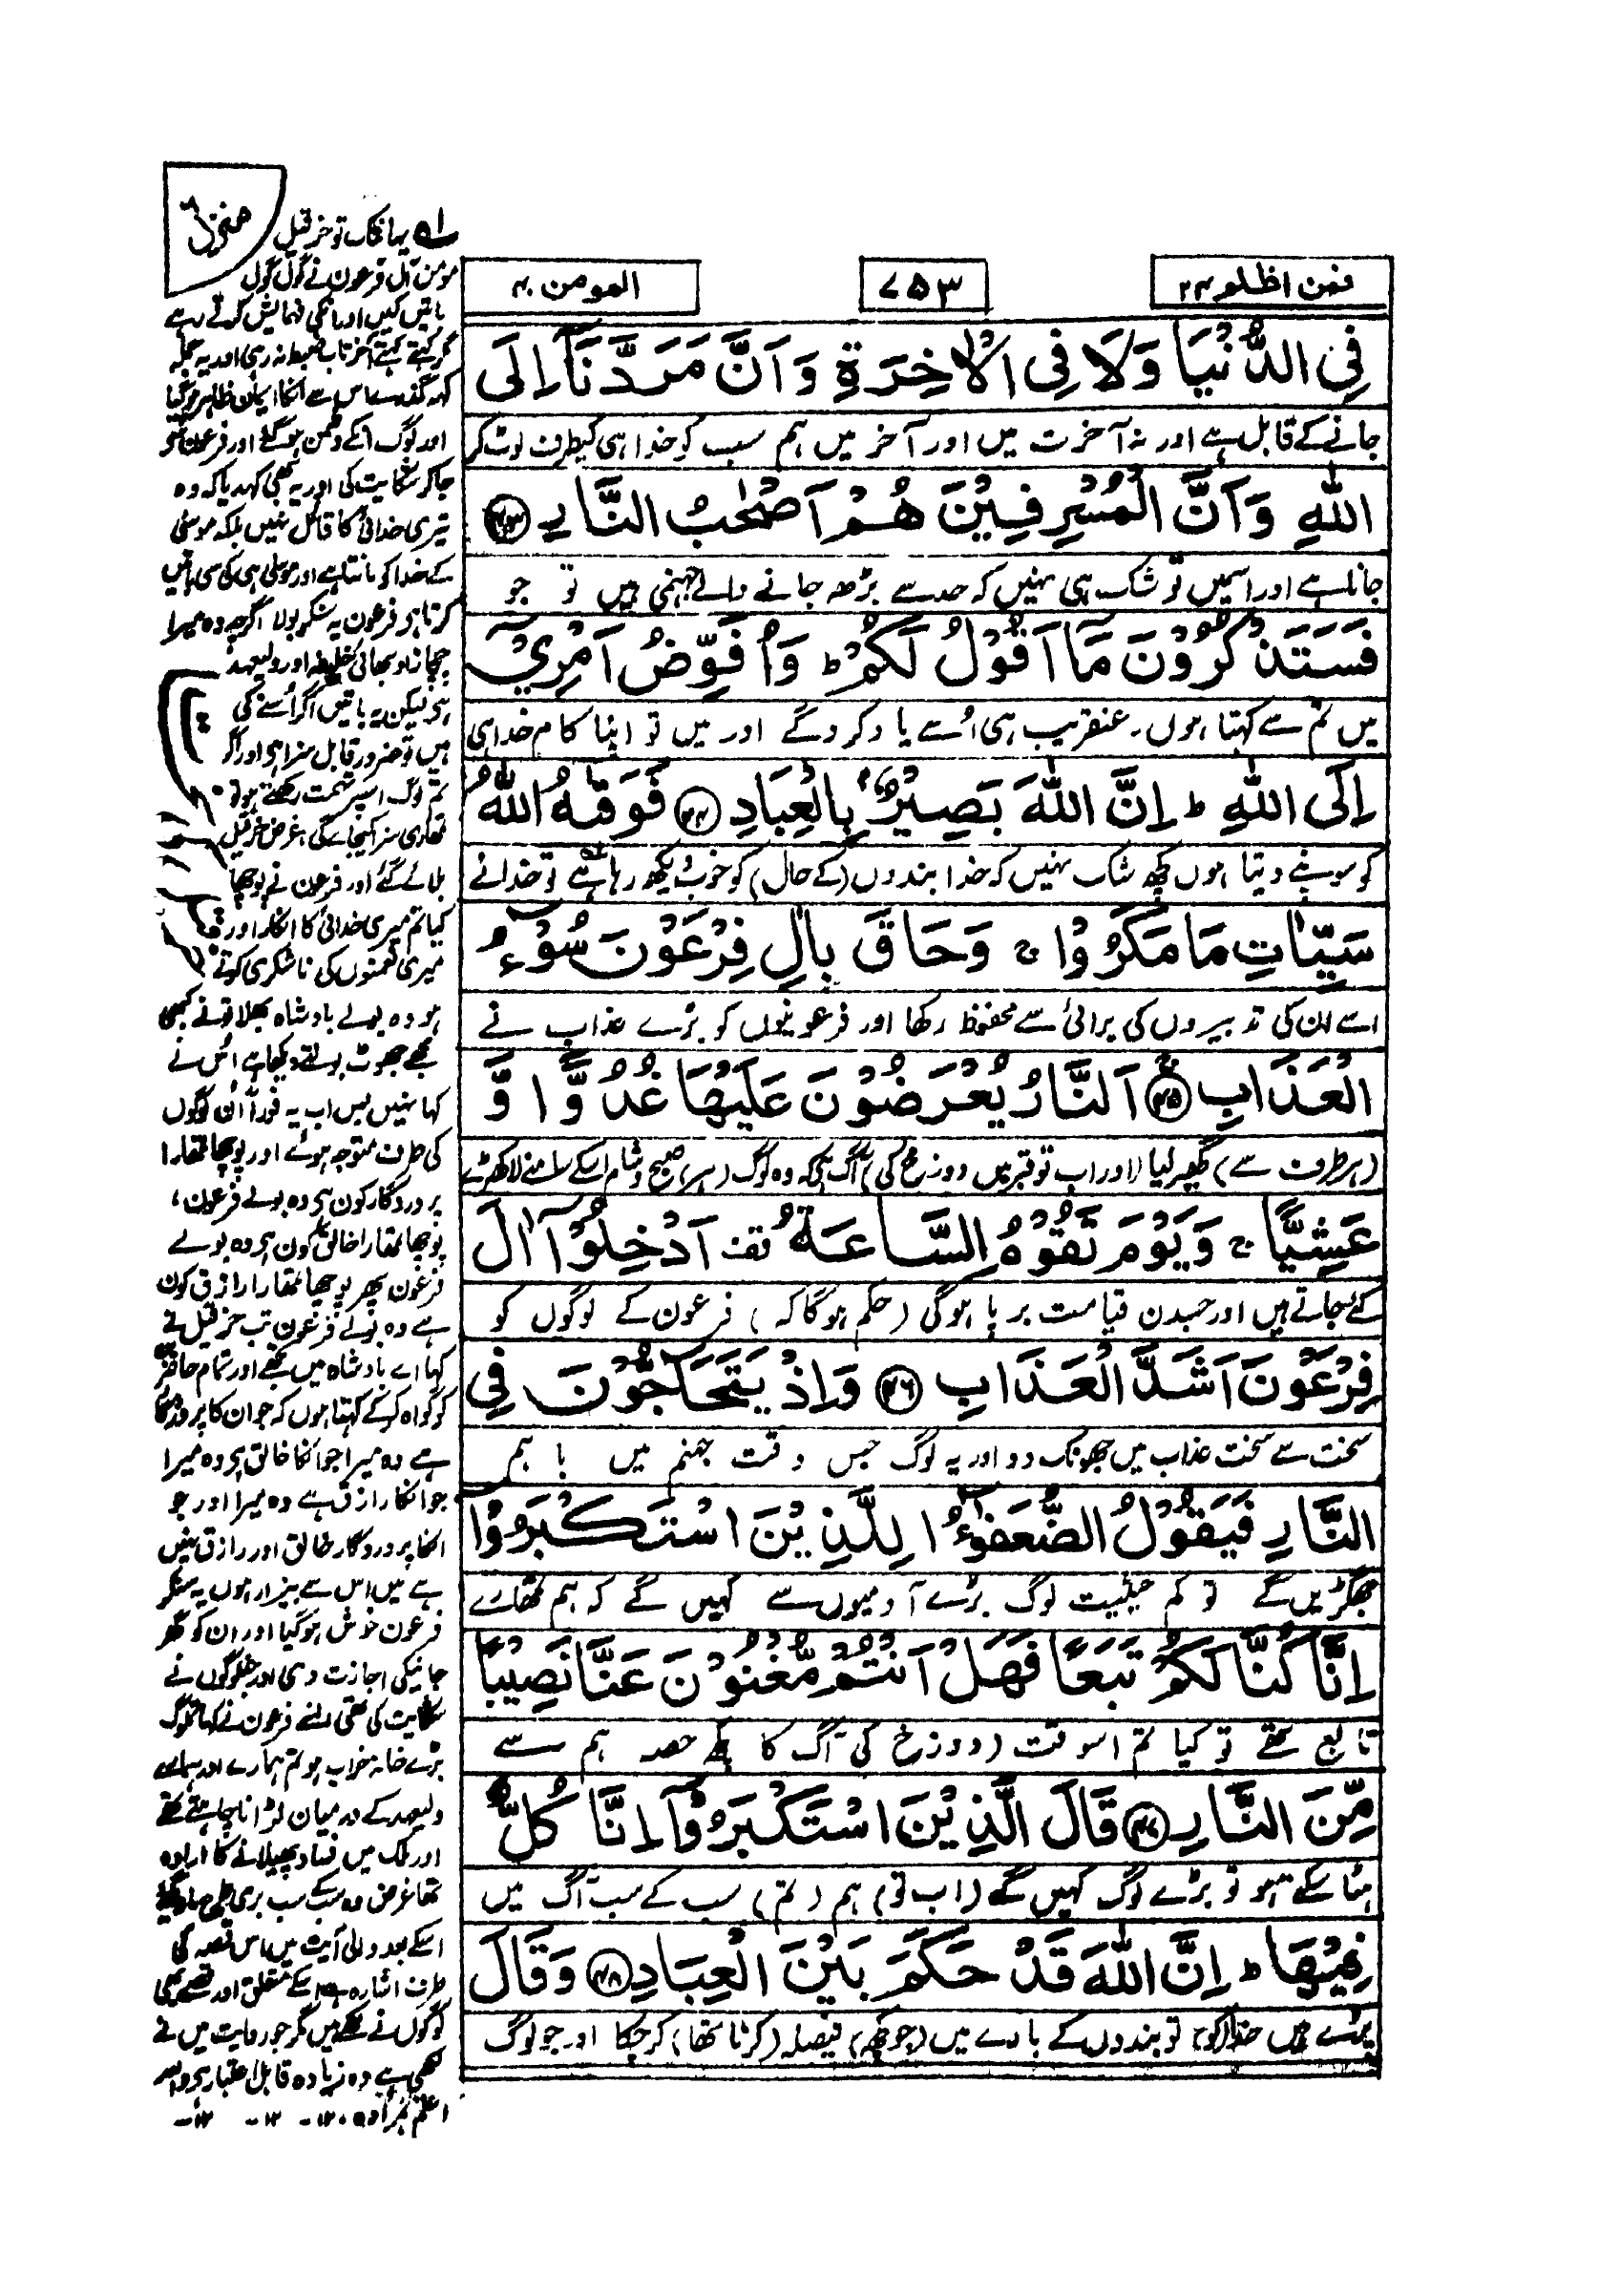 فمن اظلم ۲۴
۷۵۳
المومن ۴۰
فِی الدُّنْیَا وَلَا فِی الْاٰخِرَةِ وَاَنَّ مَرَدَّنَاۤ اِلَی
جانے کے قابل ہے اور نہ آخرت میں اور آخر میں ہم سب کو خدا ہی کیطرف لوٹ کر
اللّٰهِ وَاَنَّ الْمُسْرِفِیْنَ هُمْ اَصْحٰبُ النَّارِ ﴿۴۳﴾
جانا ہے اور اسمیں تو شک ہی نہیں کہ حد سے بڑھ جانے والے جہنمی ہیں تو جو
فَسَتَذْكُرُوْنَ مَاۤ اَقُوْلُ لَكُمْ ؕ وَاُفَوِّضُ اَمْرِیْۤ
میں تم سے کہتا ہوں۔ عنقریب ہی اُسے یاد کرو گے اور میں تو اپنا کام خدا ہی
اِلَی اللّٰهِ ؕ اِنَّ اللّٰهَ بَصِیْرٌۢ بِالْعِبَادِ ﴿۴۴﴾ فَوَقٰىهُ اللّٰهُ
کو سونپے دیتا ہوں کچھ شک نہیں کہ خدا بندوں (کے حال) کو خوب دیکھ رہا ہے تو خدا نے
سَیِّاٰتِ مَا مَكَرُوْا ج وَحَاقَ بِاٰلِ فِرْعَوْنَ سُوْٓءُ
اسے ان کی تدبیروں کی برائی سے محفوظ رکھا اور فرعونیوں کو بڑے عذاب نے
الْعَذَابِ ﴿۴۵﴾ اَلنَّارُ یُعْرَضُوْنَ عَلَیْهَا غُدُوًّا وَّ
(ہر طرف سے) گھیر لیا (اور اب تو قبر میں دوزخ کی) آگ ہے کہ وہ لوگ (ہر) صبح و شام اسکے سامنے لا کھڑے
عَشِیًّا ج وَیَوْمَ تَقُوْمُ السَّاعَةُ قف اَدْخِلُوْۤا اٰلَ
کئے جاتے ہیں اور جسدن قیامت برپا ہوگی (حکم ہوگا کہ) فرعون کے لوگوں کو
فِرْعَوْنَ اَشَدَّ الْعَذَابِ ﴿۴۶﴾ وَاِذْ یَتَحَآجُّوْنَ فِی
سخت سے سخت عذاب میں جھونک دو اور یہ لوگ جس وقت جہنم میں باہم
النَّارِ فَیَقُوْلُ الضُّعَفٰٓؤُا لِلَّذِیْنَ اسْتَكْبَرُوْۤا
جھگڑیں گے تو کم حیثیت لوگ بڑے آدمیوں سے کہیں گے کہ ہم تمھارے
اِنَّا كُنَّا لَكُمْ تَبَعًا فَهَلْ اَنْتُمْ مُّغْنُوْنَ عَنَّا نَصِیْبًا
تابع تھے تو کیا تم اسوقت (دوزخ کی آگ کا کچھ حصہ ہم سے
مِّنَ النَّارِ ﴿۴۷﴾ قَالَ الَّذِیْنَ اسْتَكْبَرُوْۤا اِنَّا كُلٌّ
ہٹا سکتے ہو تو بڑے لوگ کہیں گے (اب تو) ہم (تم) سب کے سب آگ میں
فِیْهَاۤ ؕ اِنَّ اللّٰهَ قَدْ حَكَمَ بَیْنَ الْعِبَادِ ﴿۴۸﴾ وَقَالَ
پڑے ہیں خدا (کو) تو بندوں کے بارے میں (جو کچھ) فیصلہ (کرنا تھا) کرچکا اور جو لوگ
منزل ۶
۱؎ یہانتک تو حزقیل
مومن آل فرعون نے گول گول
باتیں کیں اور انکی فہمایش کرتے رہے
مگر کہتے کہتے آخر تاب ضبط نہ رہی اور یہ جملہ
کہہ گذرے اس سے انکا ایمان ظاہر ہوگیا
اور لوگ انکے دشمن ہوگئے اور فرعون سے
جاکر شکایت کی اور یہ بھی کہدیا کہ وہ
تیری خدائی کا قائل نہیں بلکہ موسیٰ
کے خدا کو مانتا ہے اور موسیٰ ہی کی سی باتیں
کرتا ہے فرعون یہ سنکر بولا اگرچہ وہ میرا
چچازاد بھائی خلیفہ اور ولیعہد
ہے لیکن یہ باتیں اگر اُسنے کی
ہیں تو ضرور قابل سزا ہے اور اگر
تم لوگ اسپر تہمت رکھتے ہو تو
تمھاری سزا کیجائے گی، غرض حزقیل
بلائے گئے اور فرعون نے پوچھا
کیا تم میری خدائی کا انکار اور
میری نعمتوں کی ناشکری کرتے
ہو وہ بولے بادشاہ بھلا تونے کبھی
مجھے جھوٹ بولتے دیکھا ہے اُس نے
کہا نہیں بس اب یہ فوراً ان لوگوں
کی طرف متوجہ ہوئے اور پوچھا تمھارا
پروردگار کون ہے وہ بولے فرعون،
پوچھا تمھارا خالق کون ہے وہ بولے
فرعون پھر پوچھا تمھارا رازق کون
ہے وہ بولے فرعون تب حزقیل نے
کہا اے بادشاہ میں تجھے اور تمام حاضرین
کو گواہ کرکے کہتا ہوں کہ جو ان کا پروردگار
ہے وہ میرا جو انکا خالق ہے وہ میرا
جو انکا رازق ہے وہ میرا اور جو
انکا پروردگار خالق اور رازق نہیں
ہے میں اس سے بیزار ہوں یہ سنکر
فرعون خوش ہوگیا اور ان کو گھر
جانیکی اجازت دی اور جن لوگوں نے
شکایت کی تھی ان سے فرعون نے کہا تم لوگ
بڑے خانہ خراب ہو تم ہمارے اور ہمارے
ولیعہد کے درمیان لڑانا چاہتے تھے
اور ملک میں فساد پھیلانے کا ارادہ
تھا غرض وہ سب کے سب بری طرح مارے گئے
اسکے بعد والی آیت میں اس قصہ کی
طرف اشارہ ہے اسکے متعلق اور قصے بھی
لوگوں نے لکھے ہیں مگر جو روایت میں نے
لکھی ہے وہ زیادہ قابل اعتبار ہے واللہ
اعلم ۱۲- ۱۲- ۱۲-